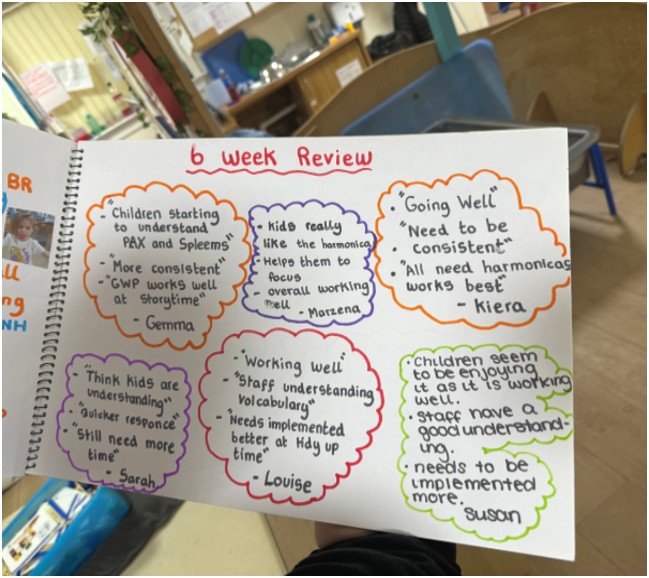 BR
ng
NH
6 Week Review
- "Children starting
to understand
PAX and Spleems"
- "More consistent"
- "GWP works well
at Storytime"
- Gemma
- Kids really
like the harmonica
- Helps them to
focus
- overall working
well
- Marzena
• "Going Well"
"Need to be
• consistent"
• "All need harmonicas
works best"
- Kiera
- "Think kids are
understanding"
- "Quicker responce"
- "Still need more
time"
- Sarah
- "Working well"
- "Staff understanding
Volcabulary"
- "Needs implemented
better at tidy up
time"
- Louise
• Children seem
to be enjoying
it as it is working
well.
• Staff have a
good understand-
ing.
• needs to be
implemented
more.
Susan